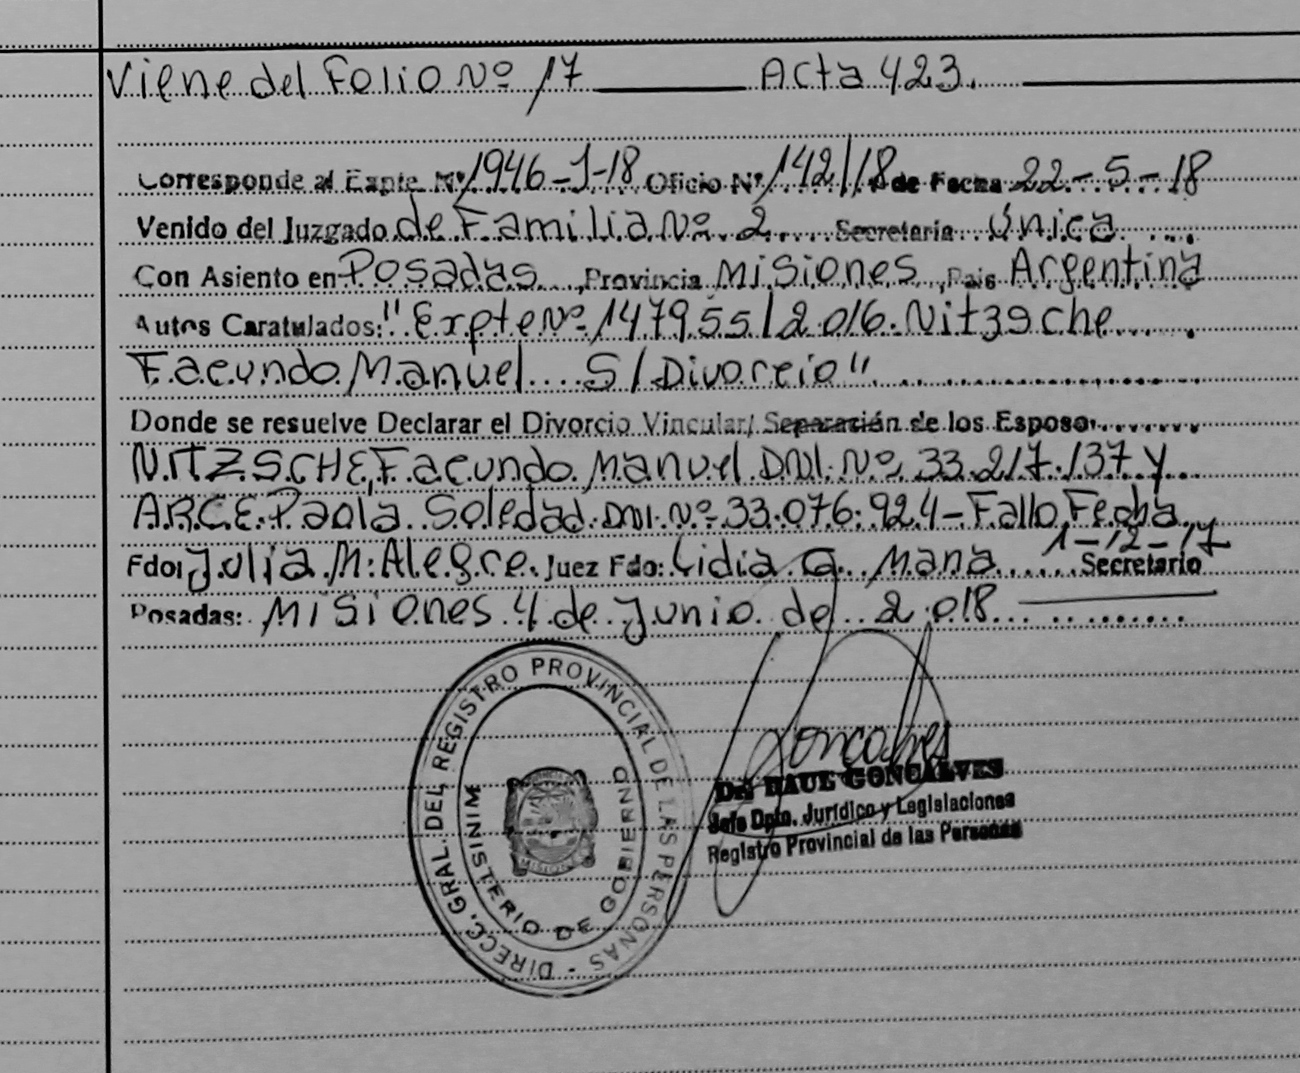 Viene del Folio Nº 17 Acta 423.
Corresponde al Expte. Nº 1946-J-18 Oficio Nº 142/18 de Fecha 22-5-18
Venido del Juzgado de Familia Nº 2 Secretaria Única
Con Asiento en Posadas Provincia Misiones Pais Argentina
Autos Caratulados: "Expte Nº 147955/2016. Nitzsche
Facundo Manuel S/Divorcio"
Donde se resuelve Declarar el Divorcio Vincular/ Separación de los Esposo
NITZSCHE, Facundo Manuel DNI. Nº 33.217.137 y
ARCE Paola Soledad. DNI. Nº 33.076.924 - Fallo Fecha
1-12-17
Fdo: Julia M. Alegre. Juez Fdo: Lidia G. Mana Secretario
Posadas: Misiones 4 de Junio de 2018
DIRECC. GRAL. DEL REGISTRO PROVINCIAL DE LAS PERSONAS -
MINISTERIO DE GOBIERNO
MISIONES
Goncalves
Dr. RAUL GONCALVES
Jefe Dpto. Jurídico y Legislaciones
Registro Provincial de las Personas